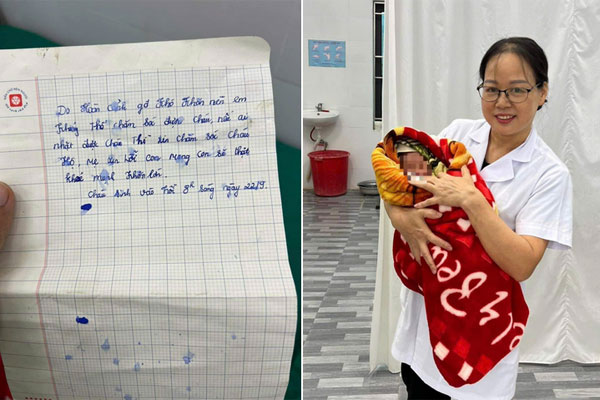 Do Hoàn Cảnh gđ Khó Khăn nên em
Không Thể chăm sóc được cháu, nếu ai
nhặt được cháu Thì xin chăm sóc cháu
hộ, Mẹ xin lỗi con Mong con sẽ thật
khỏe mạnh Khôn lớn.
Cháu sinh vào hồi 8h sáng ngày 22/9.